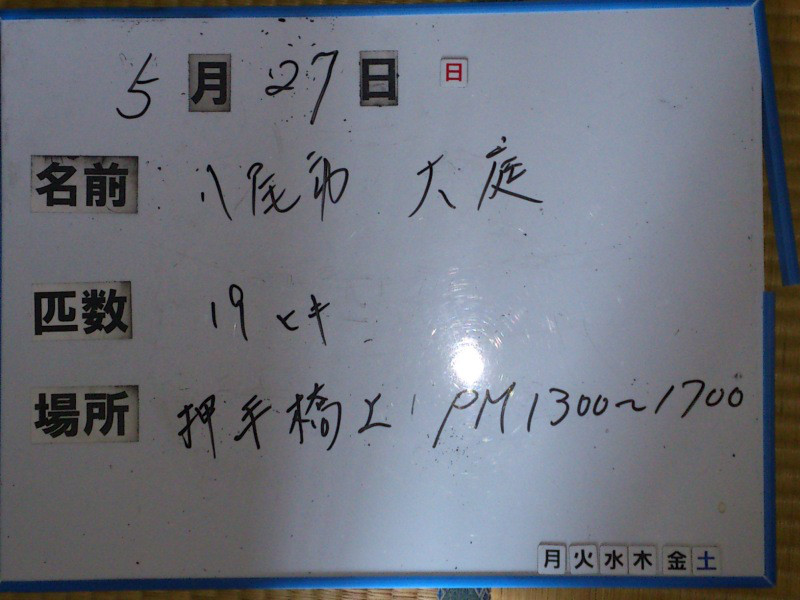 5月27日 日
名前 八尾市 大庭
匹数 19ヒキ
場所 押手橋上 PM1300~1700
月火水木金土